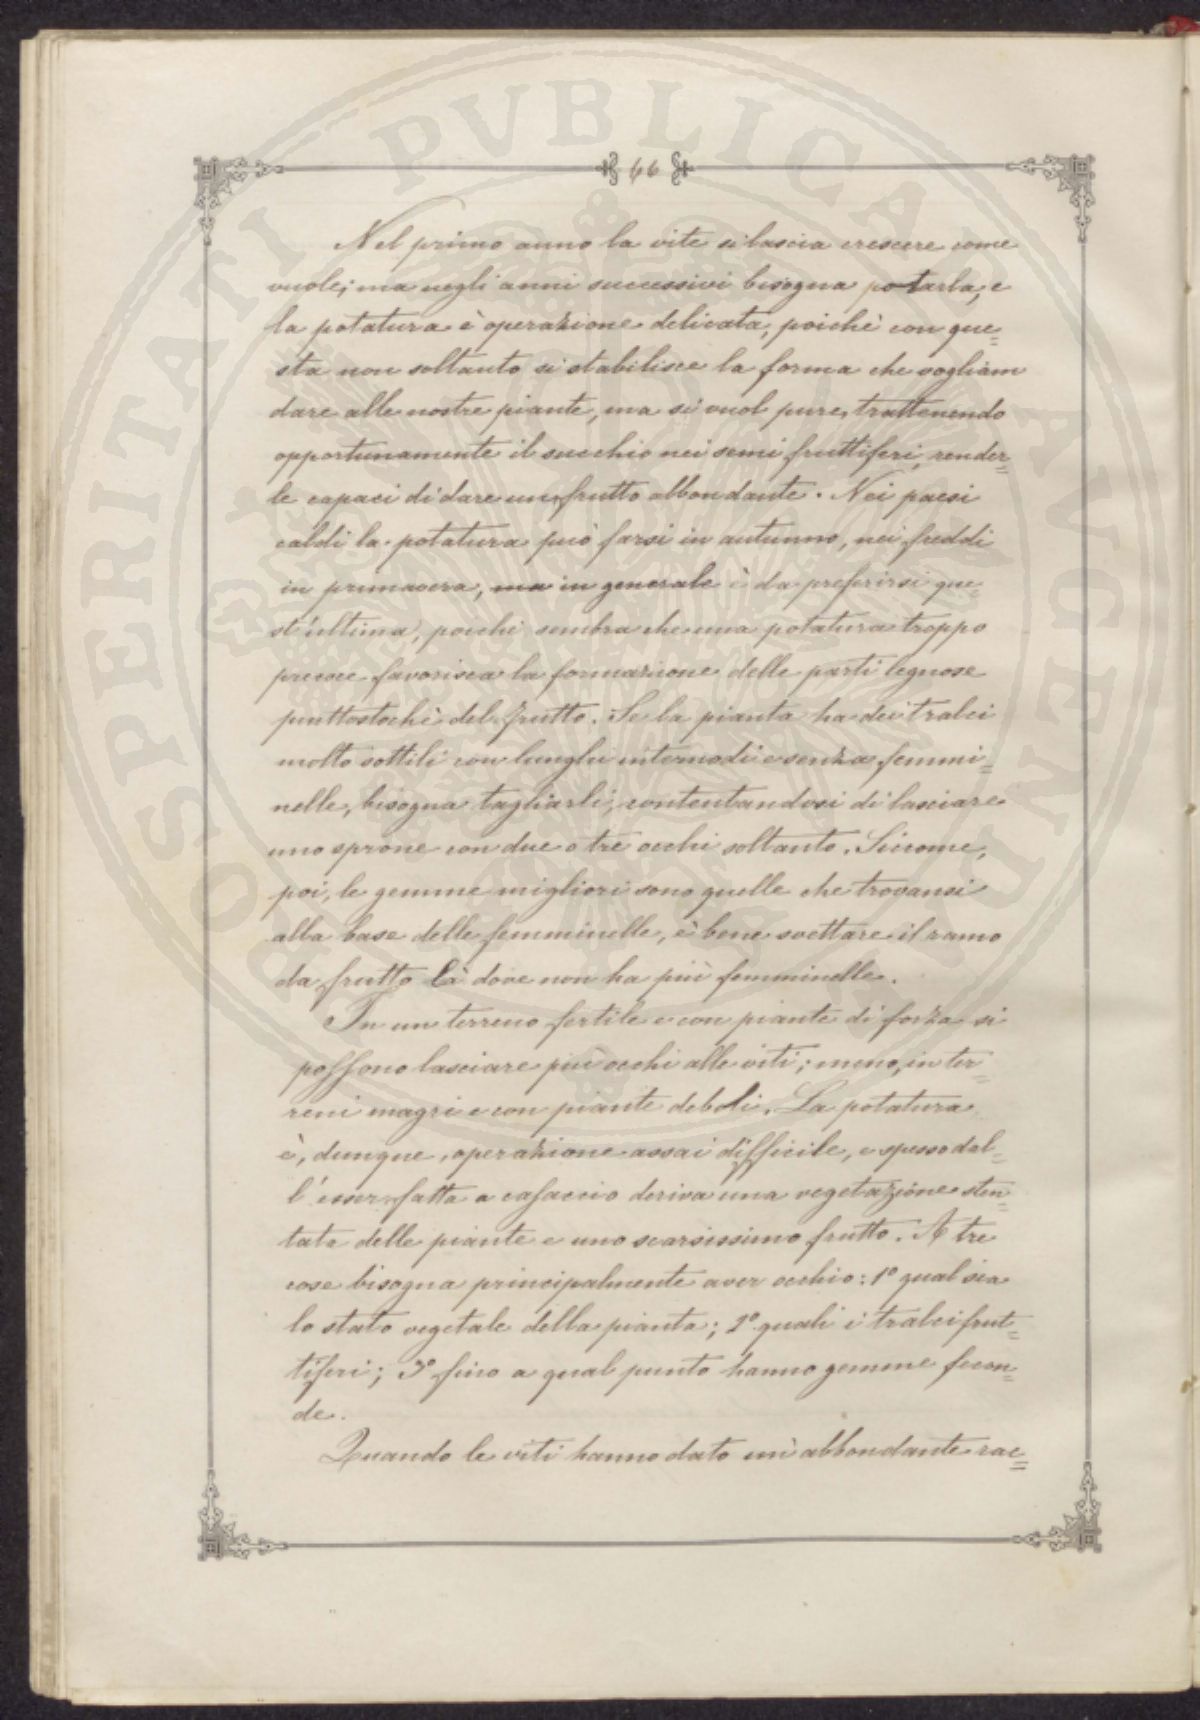 66
Nel primo anno la vite si lascia crescere come
vuole; ma negli anni successivi bisogna potarla; e
la potatura è operazione delicata, poichè con que=
sta non soltanto si stabilisce la forma che vogliam
dare alle nostre piante, ma si vuol pure, trattenendo
opportunamente il succhio nei semi fruttiferi, render=
le capaci di dare un frutto abbondante. Nei paesi
caldi la potatura può farsi in autunno, nei freddi
in primavera, ma in generale è da preferirsi que=
st'ultima, poichè sembra che una potatura troppo
precoce favorisca la formazione delle parti legnose
piuttostochè del frutto. Se la pianta ha dei tralci
molto sottili con lunghi internodi e senza femmi=
nelle, bisogna tagliarli, contentandosi di lasciare
uno sprone con due o tre occhi soltanto. Siccome,
poi, le gemme migliori sono quelle che trovansi
alla base delle femminelle, è bene svettare il ramo
da frutto là dove non ha più femminelle.
In un terreno fertile e con piante di forza si
possono lasciare più occhi alle viti; meno, in ter=
reni magri e con piante deboli. La potatura
è, dunque, operazione assai difficile, e spesso dal=
l'esser fatta a casaccio deriva una vegetazione sten=
tata delle piante e uno scarsissimo frutto. A tre
cose bisogna principalmente aver occhio: 1º qual sia
lo stato vegetale della pianta; 2º quali i tralci frut=
tiferi; 3º fino a qual punto hanno gemme fecon=
de.
Quando le viti hanno dato un'abbondante rac=
PROSPERITATI PVBLICAE AVGENDAE